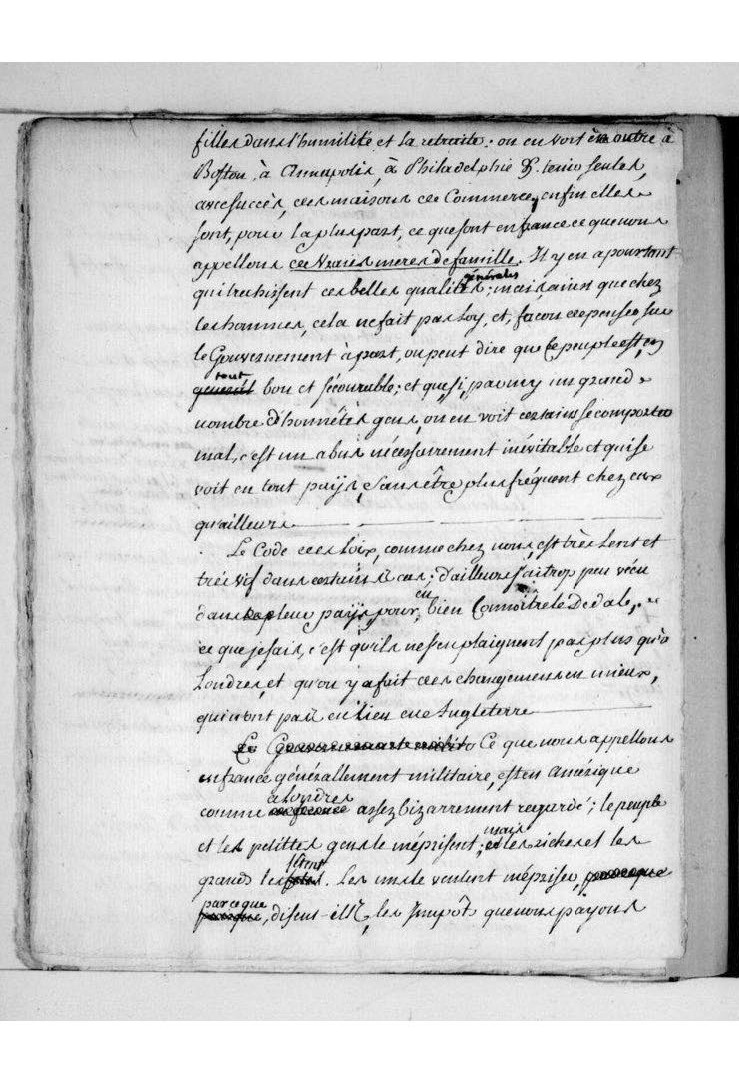 filles dans l'humilité et la retraite : on en voit en outre à
Boston, à Annapolis, à Philadelphie &. tenir seules,
avec succès, des maisons de Commerce, enfin elles
sont, pour la pluspart, ce que sont en france ce que nous
appellons de vraies meres de famille. Il y en a pourtant
générales
qui trahissent ces belles qualités ; mais, ainsi que chez
les hommes, cela ne fait pas Loy, et, façon de penser sur
le Gouvernement à part, on peut dire que ce peuple est, en
tout
général bon et sécourable ; et que, si, parmy un grand
nombre d'honnêtes gens, on en voit certains se comporter
mal, c'est un abus nécessairement inévitable et qui se
voit en tout païs, sans être plus fréquent chez eux
qu'ailleurs.
Le Code des Loix, comme chez nous, est très Lent et
très vif dans certains cas ; d'ailleurs j'ai trop peu vécu
en
dans leur païs, pour, bien Connoitre le Dedale,
ce que je sais, c'est qu'ils ne s'en plaignent pas plus qu'à
Londres, et qu'on y a fait des changemens en mieux,
qui n'ont pas eu lieu en Angleterre
Le Gouvernement militaire Ce que nous appellons
en france générallement militaire, est en Amérique
à Londres
comme en france assez bizarrement regardé ; le peuple
mais
et les petittes gens le méprisent ; et les riches et les
grands les . Les uns le veulent mépriser, parceque
parceque
, disent-ils, les Impôts que nous payons